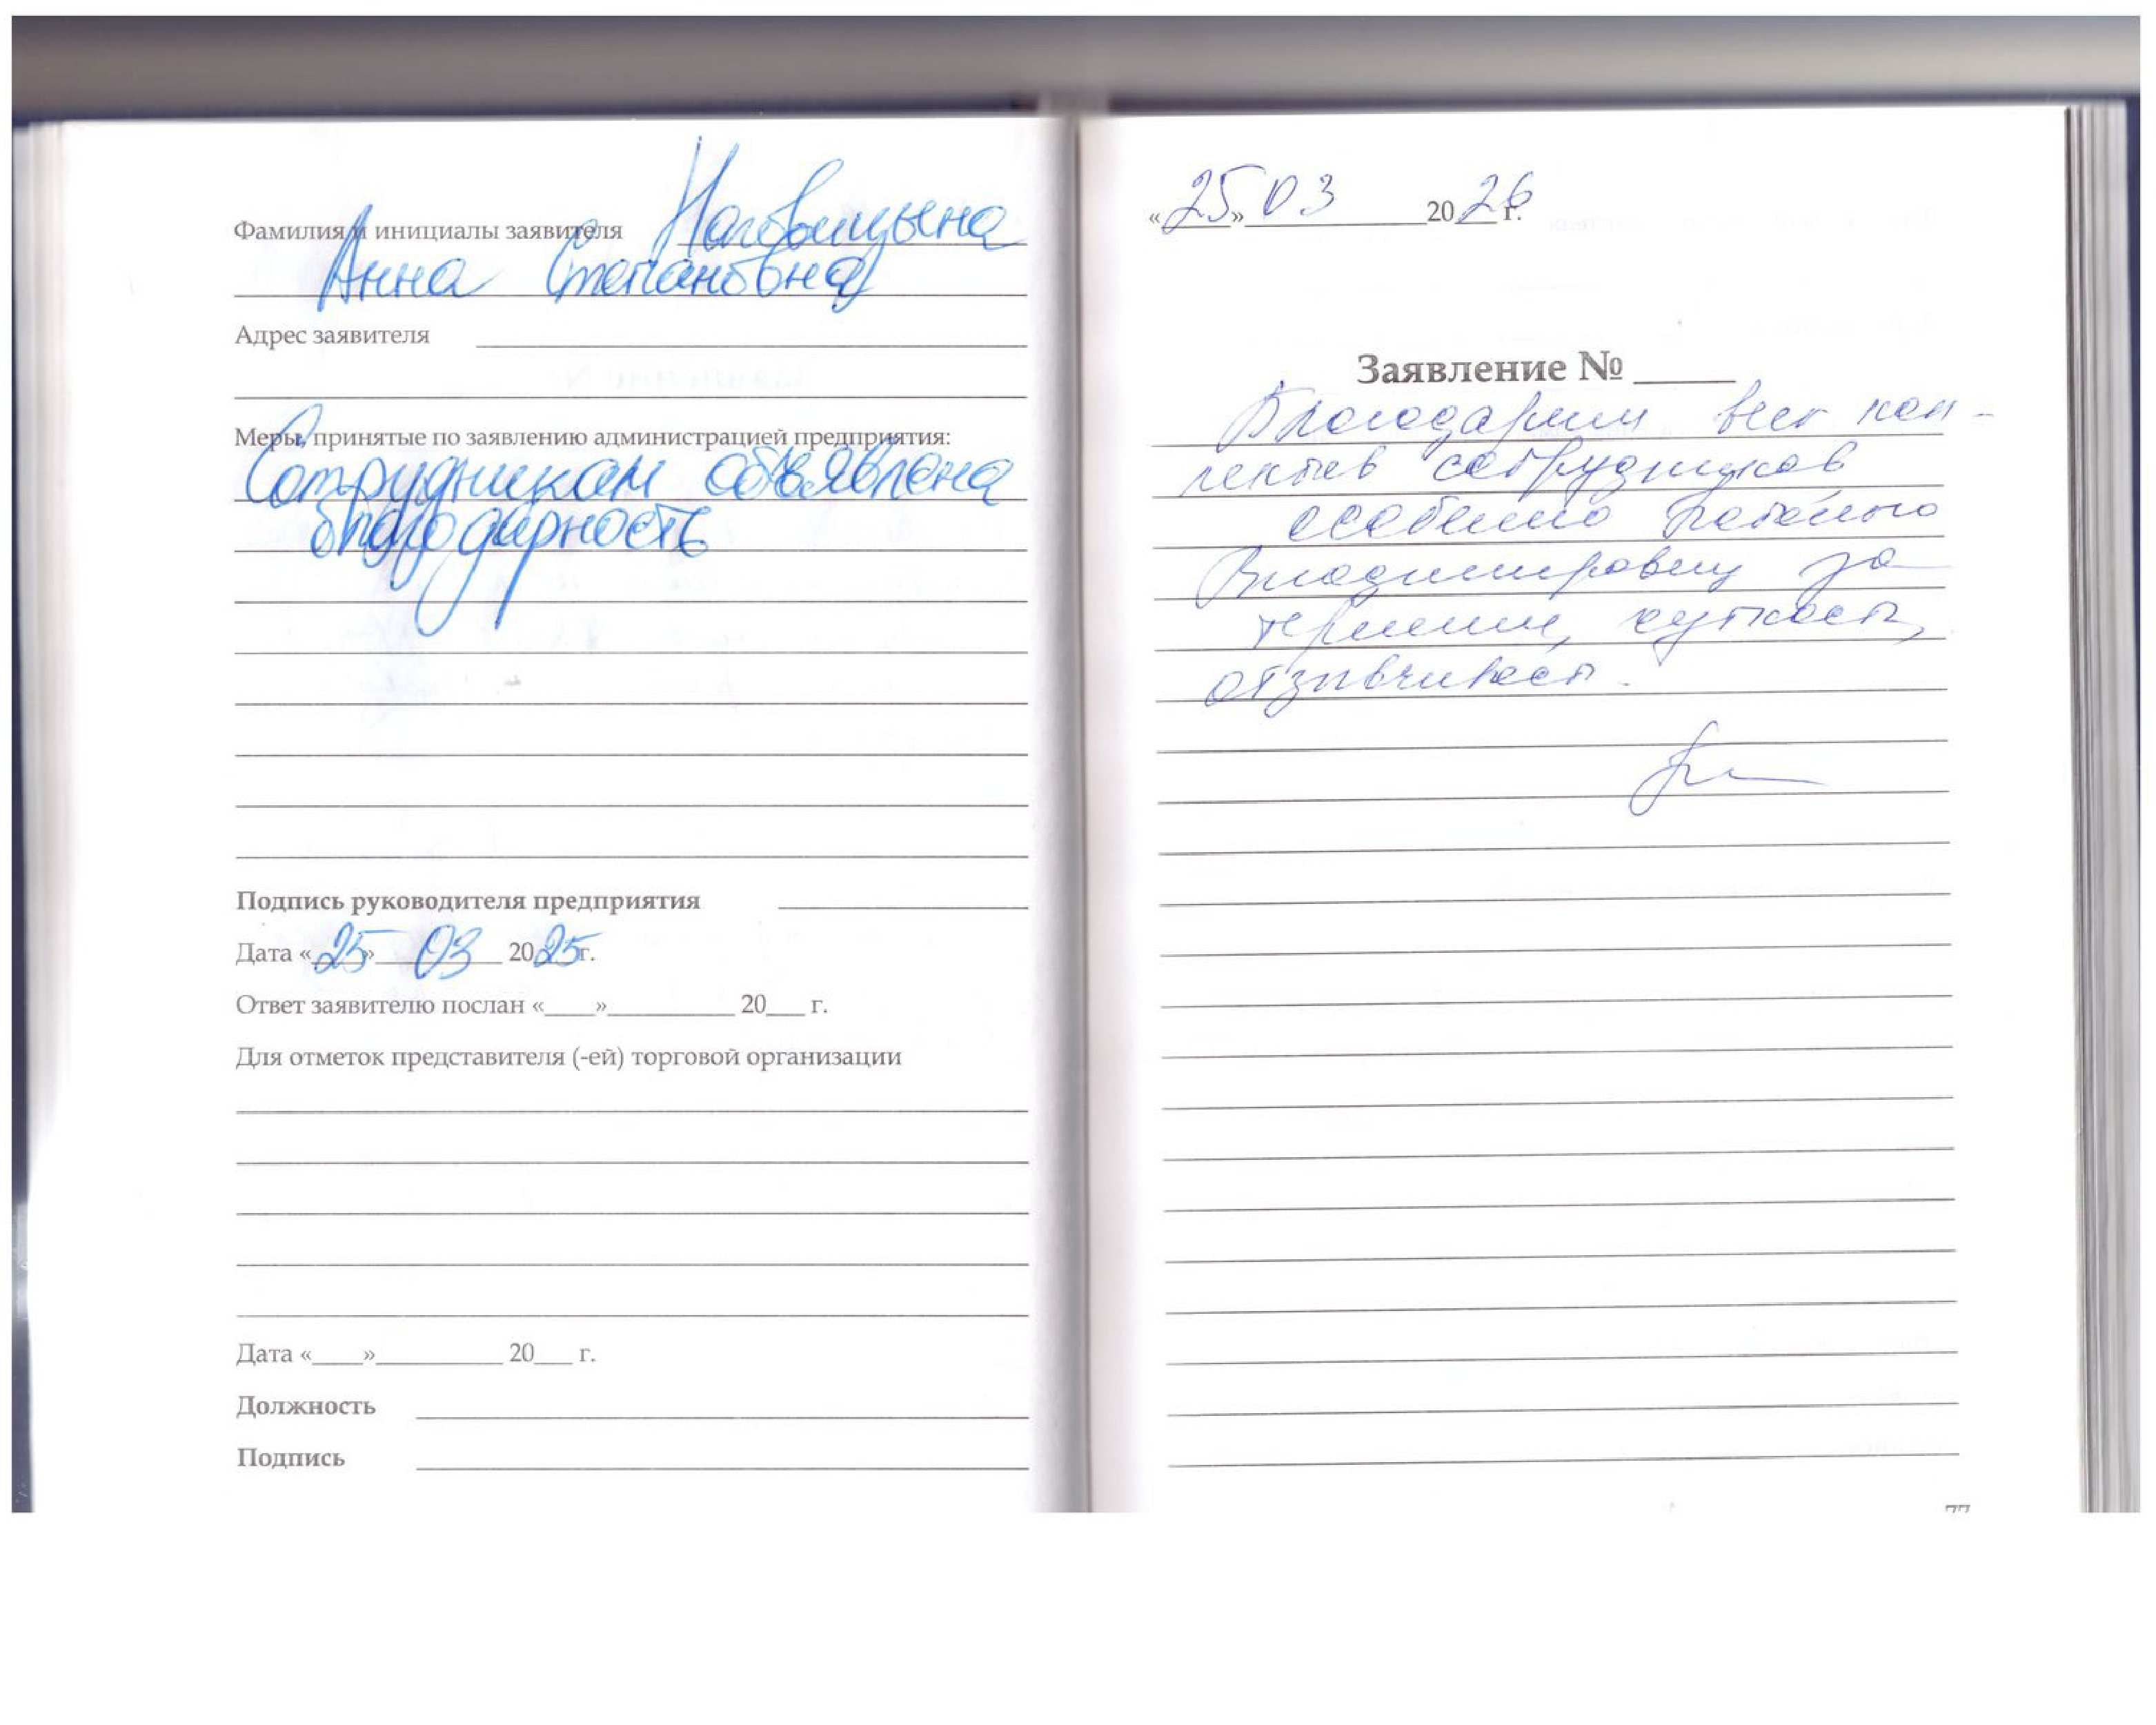 Фамилия и инициалы заявителя Наговицына
Анна Степановна
Адрес заявителя
Меры, принятые по заявлению администрацией предприятия:
Сотрудникам объявлена
благодарность
Подпись руководителя предприятия
Дата «25» 03 2025 г.
Ответ заявителю послан «____»__________ 20___ г.
Для отметок представителя (-ей) торговой организации
Дата «____»__________ 20___ г.
Должность
Подпись
«25» 03 2026 г.
Заявление № _____
Благодарим весь кол-
лектив сотрудников
особенно
Владимировну за
терпение, чуткость,
отзывчивость.
77